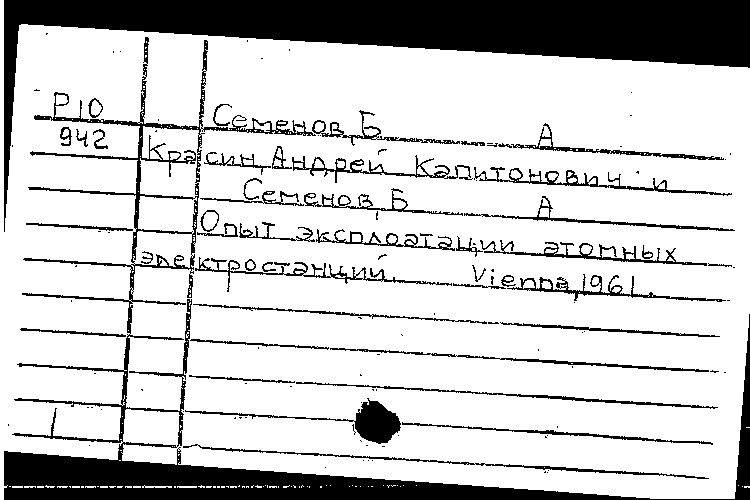 P10 Семенов, Б А
942 Красин, Андрей Капитонович и
Семенов, Б А
Опыт эксплоатации атомных
электростанций. Vienna, 1961.